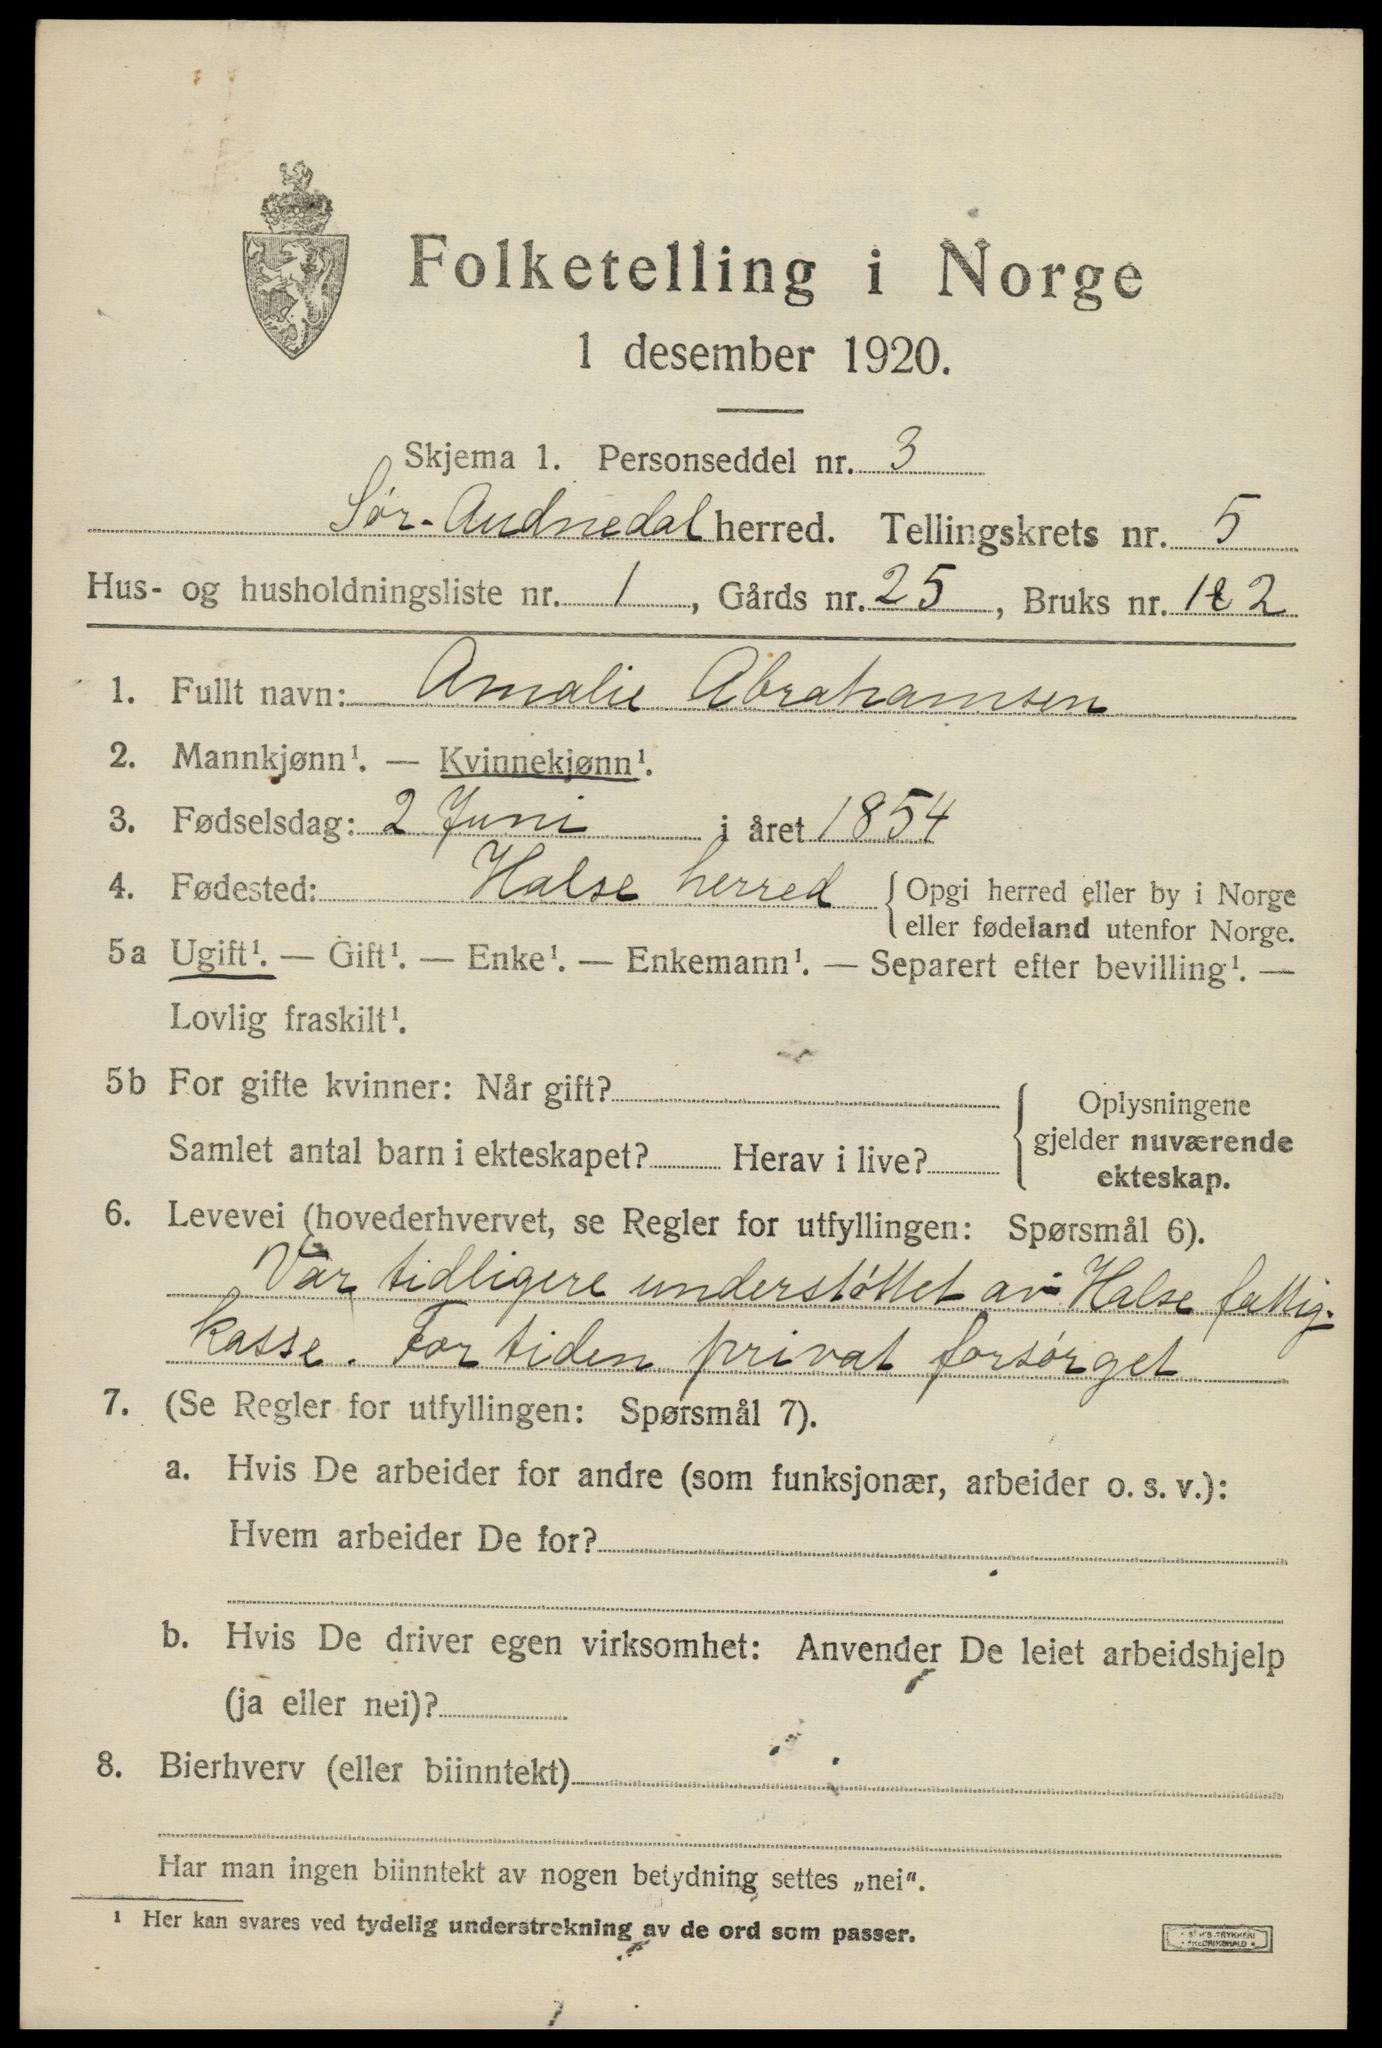 Folketelling i Norge
1 desember 1920.
Skjema 1. Personseddel nr. 3
Sør-Audnedal herred. Tellingskrets nr. 5
Hus- og husholdningsliste nr. 1, Gårds nr. 25, Bruks nr. 1 & 2
1. Fullt navn: Amalie Abrahamsen
2. Mannkjønn¹. — Kvinnekjønn¹.
3. Fødselsdag: 2 Juni i året 1854
4. Fødested: Halse herred {Opgi herred eller by i Norge
eller fødeland utenfor Norge.
5a Ugift¹. — Gift¹. — Enke¹. — Enkemann¹. — Separert efter bevilling¹. —
Lovlig fraskilt¹.
5b For gifte kvinner: Når gift?
Samlet antal barn i ekteskapet? Herav i live?
Oplysningene
gjelder nuværende
ekteskap.
6. Levevei (hovederhvervet, se Regler for utfyllingen: Spørsmål 6).
Var tidligere understøttet av Halse fattig-
kasse. For tiden privat forsørget
7. (Se Regler for utfyllingen: Spørsmål 7).
a. Hvis De arbeider for andre (som funksjonær, arbeider o. s. v.):
Hvem arbeider De for?
b. Hvis De driver egen virksomhet: Anvender De leiet arbeidshjelp
(ja eller nei)?
8. Bierhverv (eller biinntekt)
Har man ingen biinntekt av nogen betydning settes „nei“.
¹ Her kan svares ved tydelig understrekning av de ord som passer.
TRYKKERI
FREDRIKSHALD